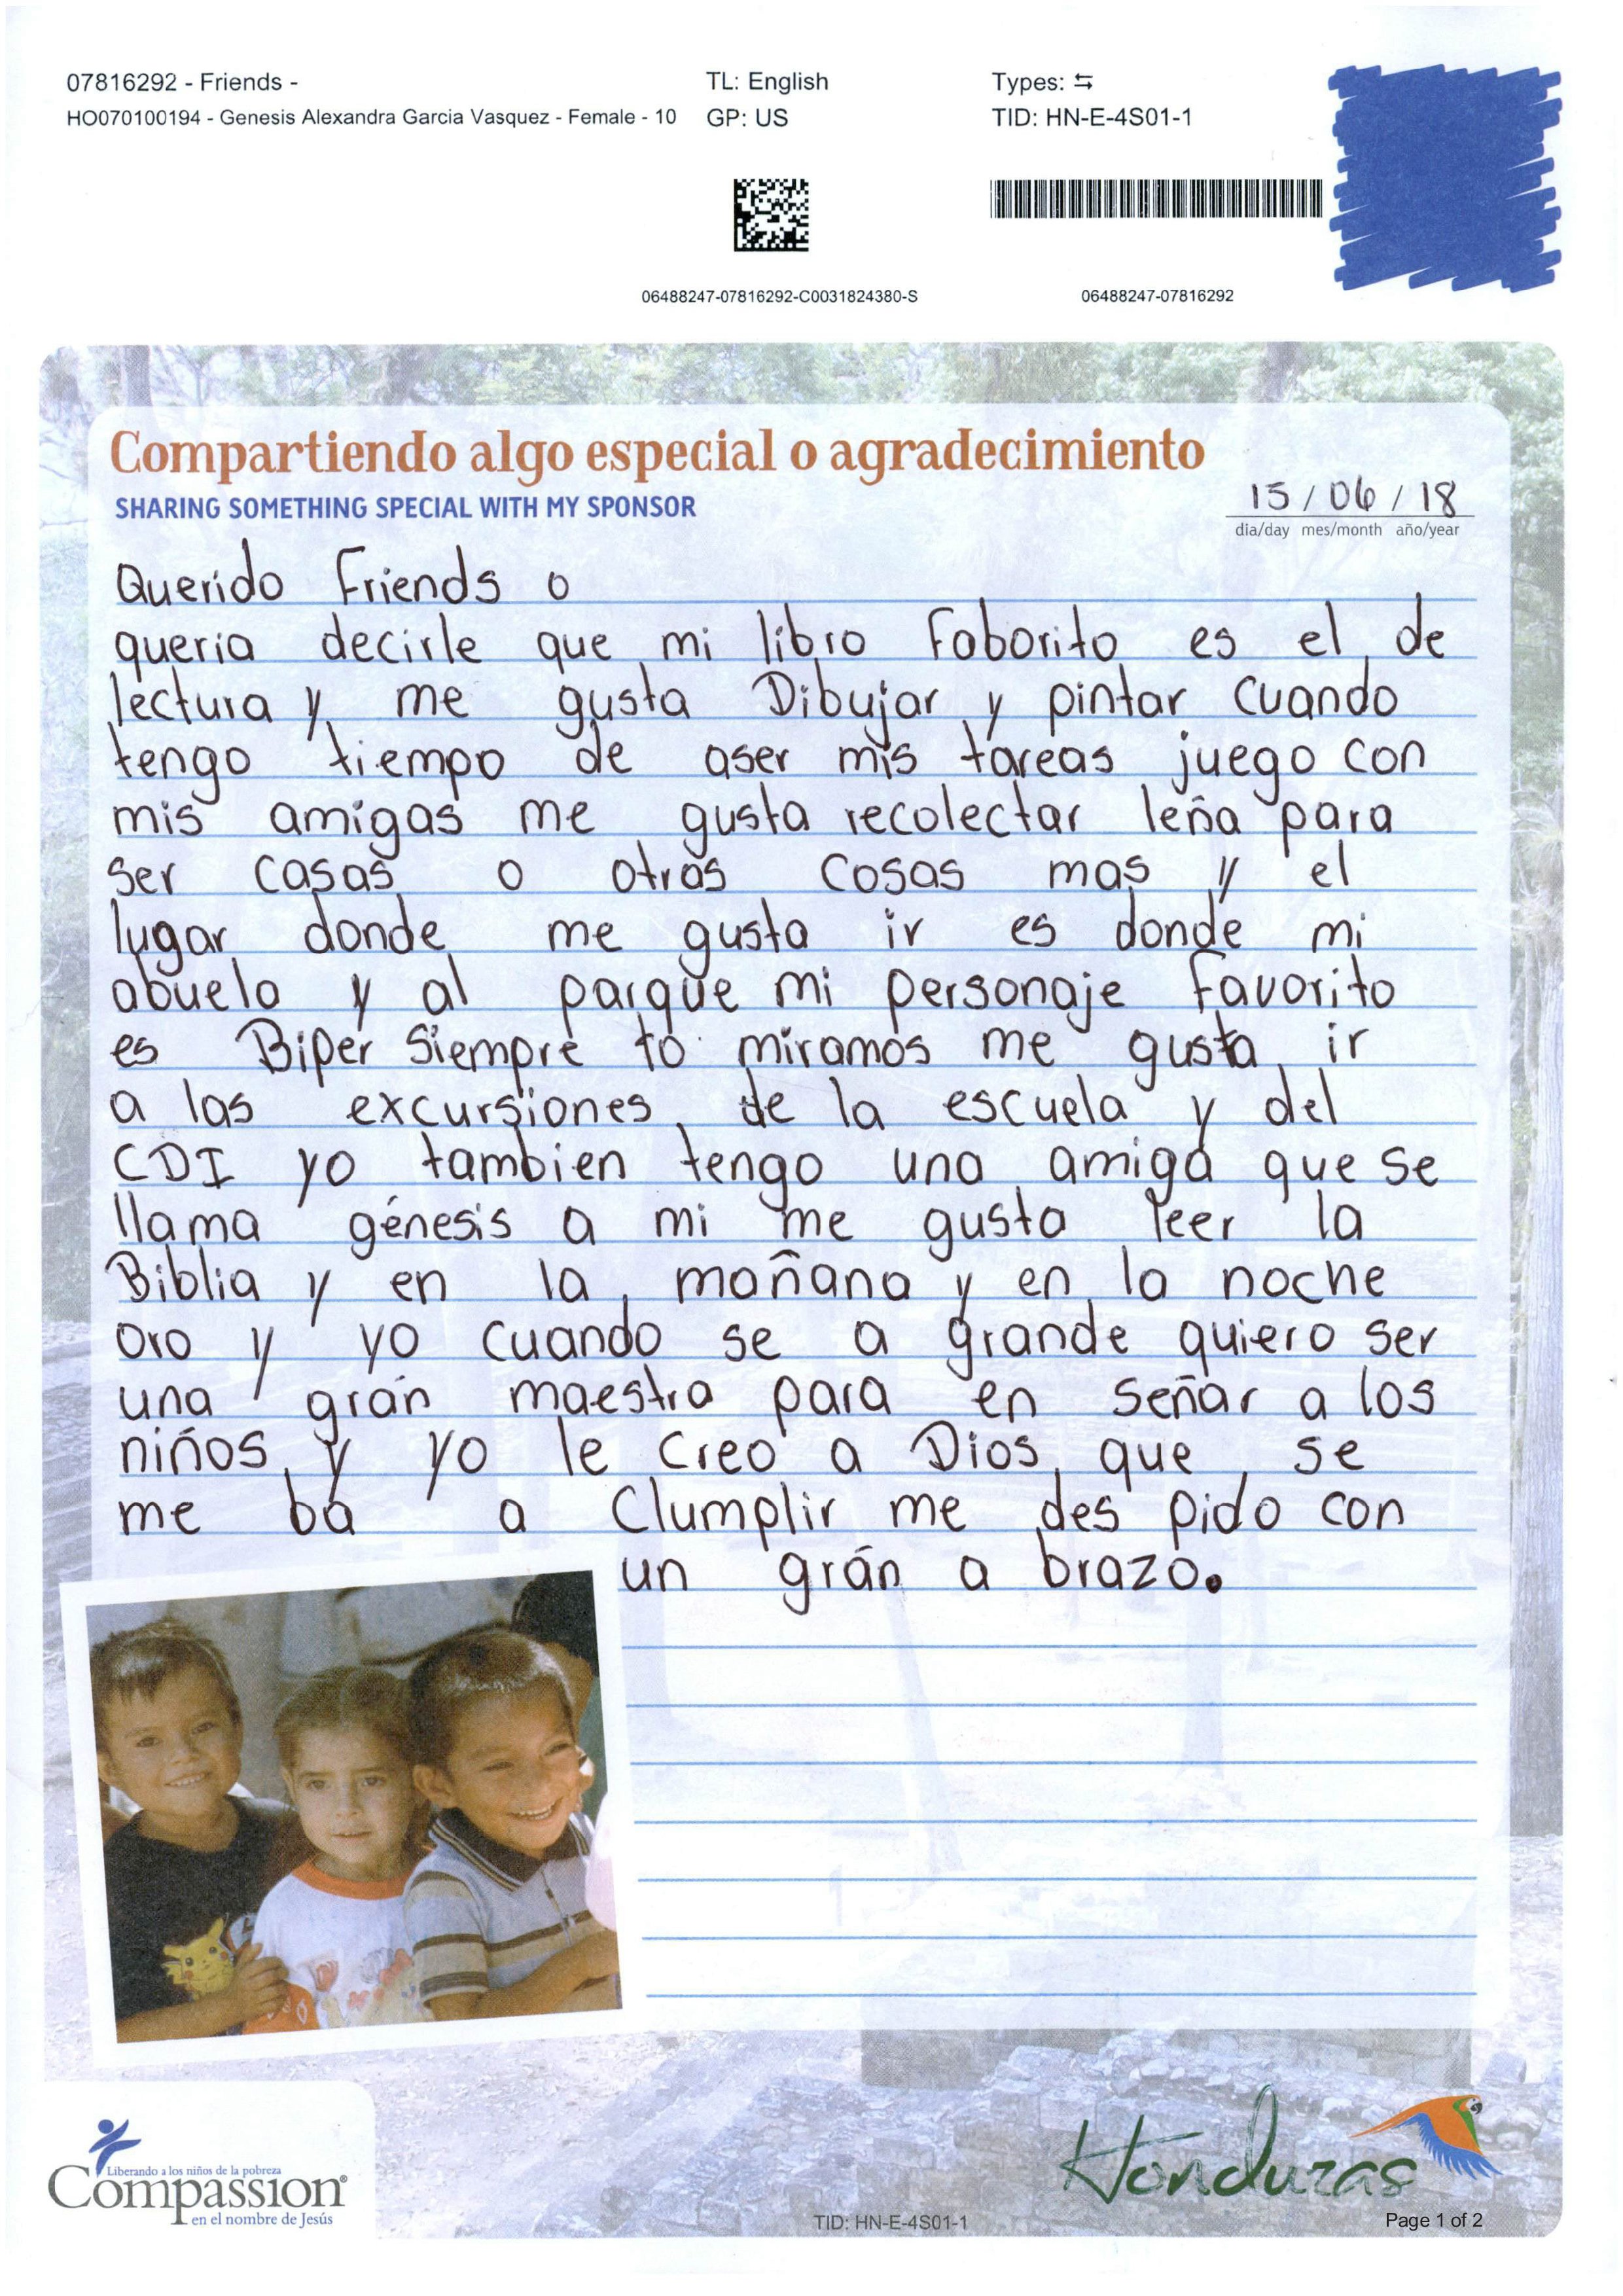 07816292 - Friends -
HO070100194 - Genesis Alexandra Garcia Vasquez - Female - 10
TL: English
GP: US
Types: ⇆
TID: HN-E-4S01-1
06488247-07816292-C0031824380-S
06488247-07816292
Compartiendo algo especial o agradecimiento
SHARING SOMETHING SPECIAL WITH MY SPONSOR
15 / 06 / 18
dia/day mes/month año/year
Querido Friends o
queria decirle que mi libro Faborito es el de
lectura y me gusta Dibujar y pintar cuando
tengo tiempo de aser mis tareas juego con
mis amigas me gusta recolectar leña para
ser casas o otras cosas mas y el
lugar donde me gusta ir es donde mi
abuelo y al parque mi personaje favorito
es Biper siempre lo miramos me gusta ir
a las excursiones de la escuela y del
CDI yo tambien tengo una amiga que se
llama génesis a mi me gusta leer la
Biblia y en la mañana y en la noche
oro y yo cuando se a grande quiero ser
una grán maestra para en señar a los
niños y yo le creo a Dios que se
me ba a Clumplir me des pido con
un grán a brazo.
Liberando a los niños de la pobreza
Compassion®
en el nombre de Jesús
Honduras
TID: HN-E-4S01-1
Page 1 of 2